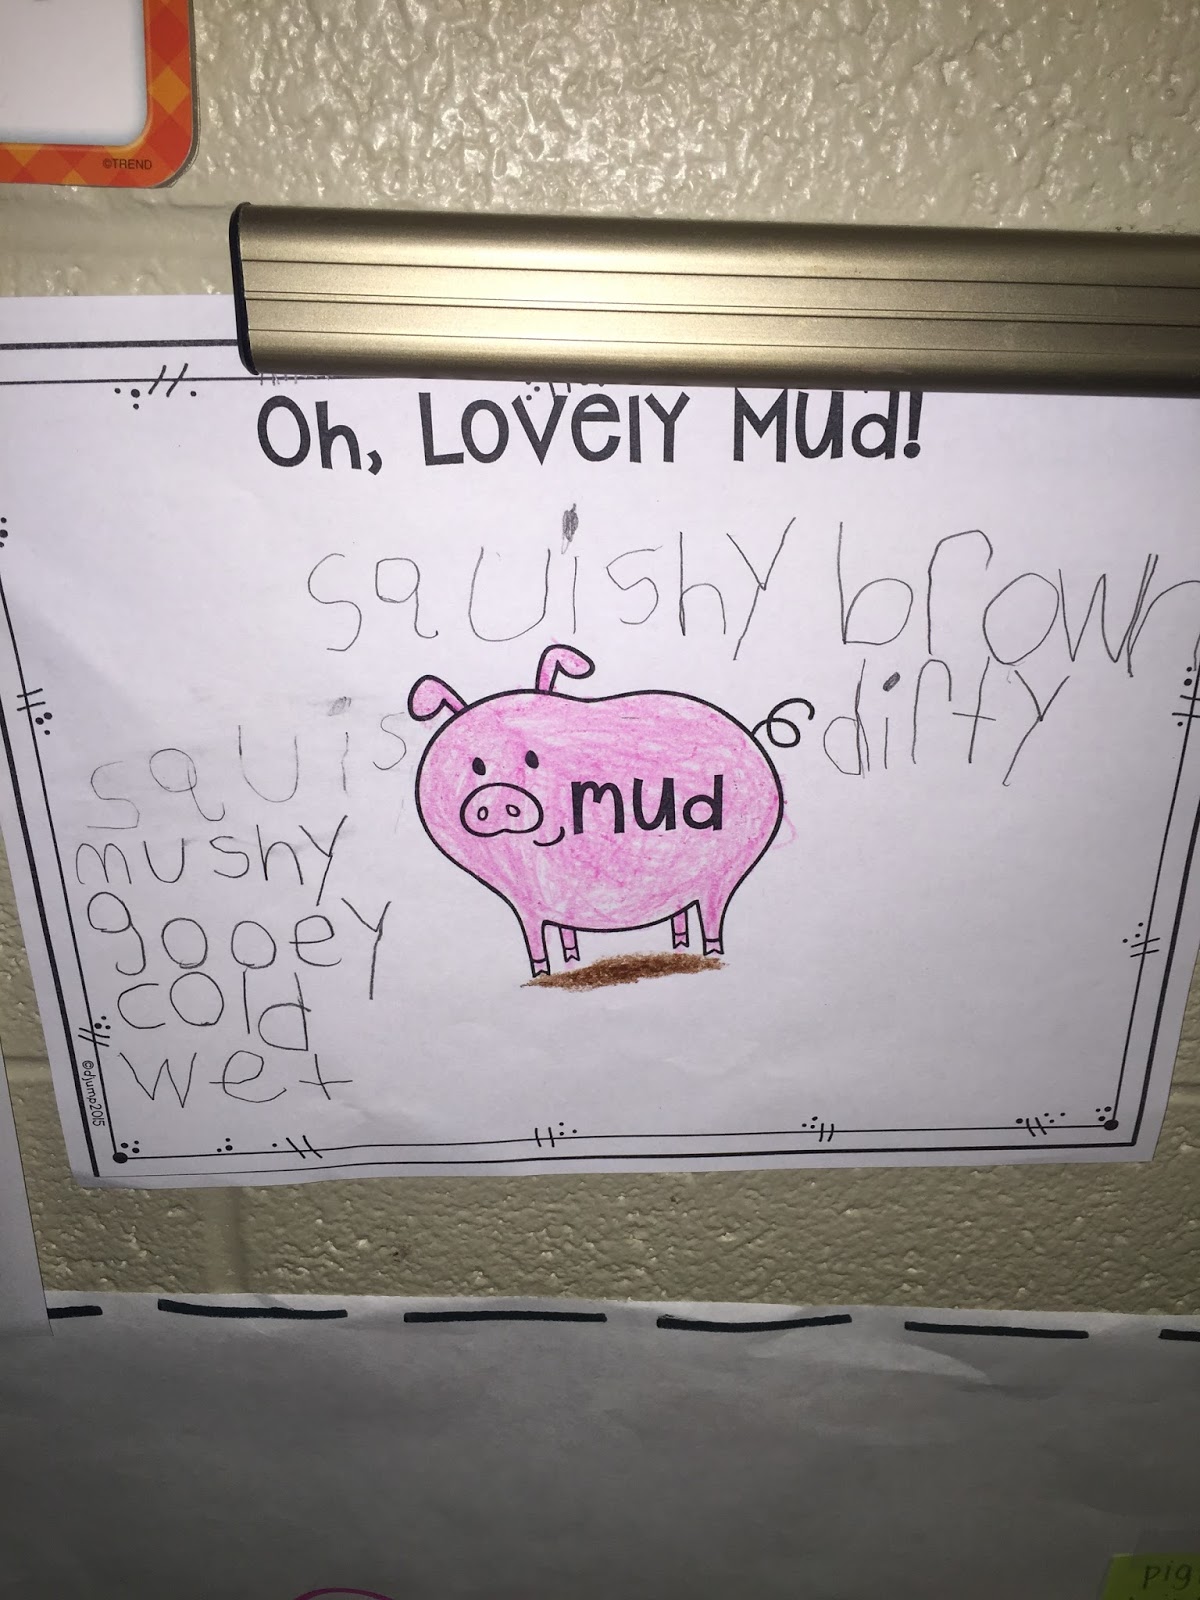 ©TREND
Oh, Lovely Mud!
squishy brown
dirty
squis
mud
mushy
gooey
cold
wet
©djump2015
pig